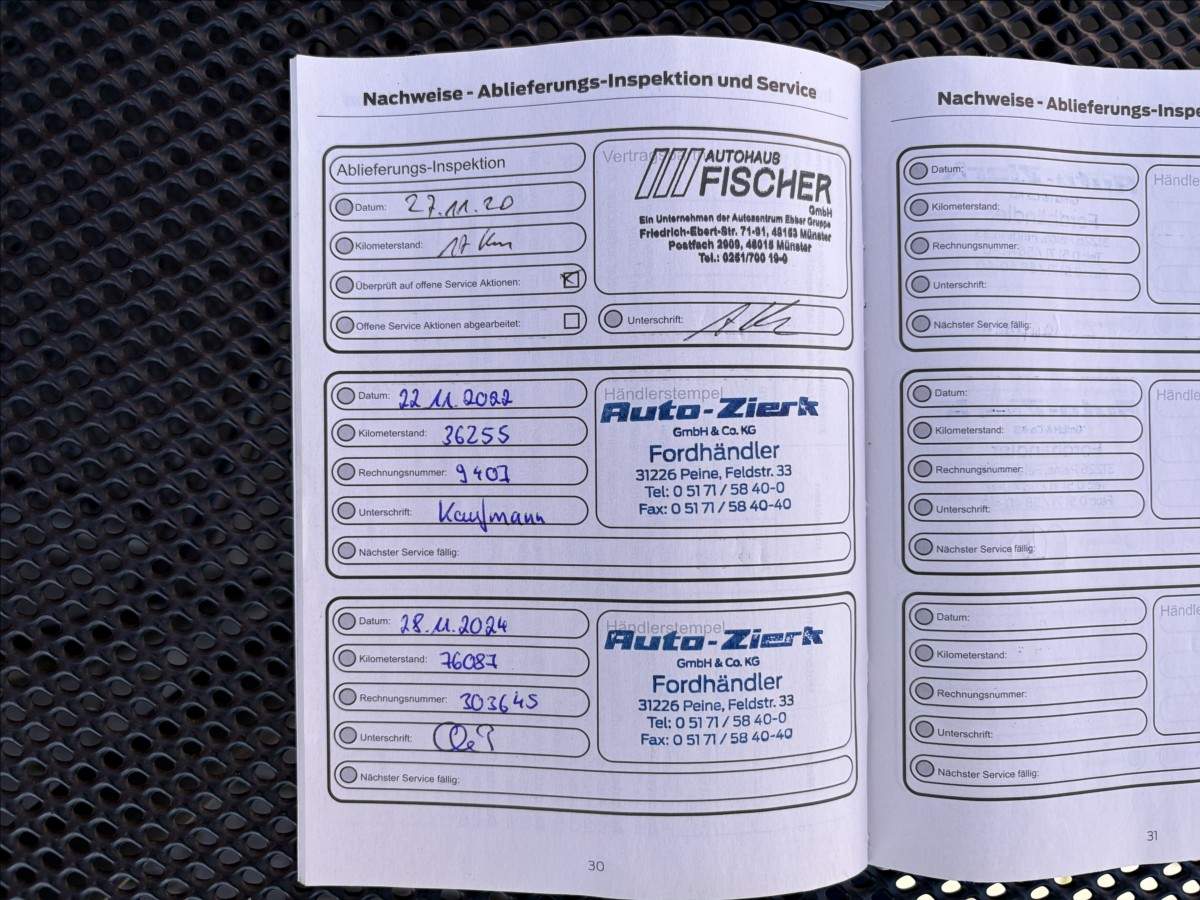 Nachweise - Ablieferungs-Inspektion und Service
Ablieferungs-Inspektion
Datum: 27.11.20
Kilometerstand: 17 Km
Überprüft auf offene Service Aktionen:
Offene Service Aktionen abgearbeitet:
AUTOHAUS
FISCHER
GmbH
Ein Unternehmen der Autozentrum Ebber Gruppe
Friedrich-Ebert-Str. 71-91, 48153 Münster
Postfach 2909, 48015 Münster
Tel.: 0251/700 19-0
Unterschrift:
Datum: 22.11.2022
Kilometerstand: 36255
Rechnungsnummer: 9407
Unterschrift: Kaufmann
Nächster Service fällig:
Händlerstempel
Auto-Zierk
GmbH & Co. KG
Fordhändler
31226 Peine, Feldstr. 33
Tel: 0 51 71 / 58 40-0
Fax: 0 51 71 / 58 40-40
Datum: 28.11.2024
Kilometerstand: 76087
Rechnungsnummer: 303645
Unterschrift:
Nächster Service fällig:
Händlerstempel
Auto-Zierk
GmbH & Co. KG
Fordhändler
31226 Peine, Feldstr. 33
Tel: 0 51 71 / 58 40-0
Fax: 0 51 71 / 58 40-40
30
Nachweise - Ablieferungs-Inspe
Datum:
Kilometerstand:
Rechnungsnummer:
Unterschrift:
Nächster Service fällig:
Händle
Datum:
Kilometerstand:
Rechnungsnummer:
Unterschrift:
Nächster Service fällig:
Händle
Datum:
Kilometerstand:
Rechnungsnummer:
Unterschrift:
Nächster Service fällig:
Händle
31